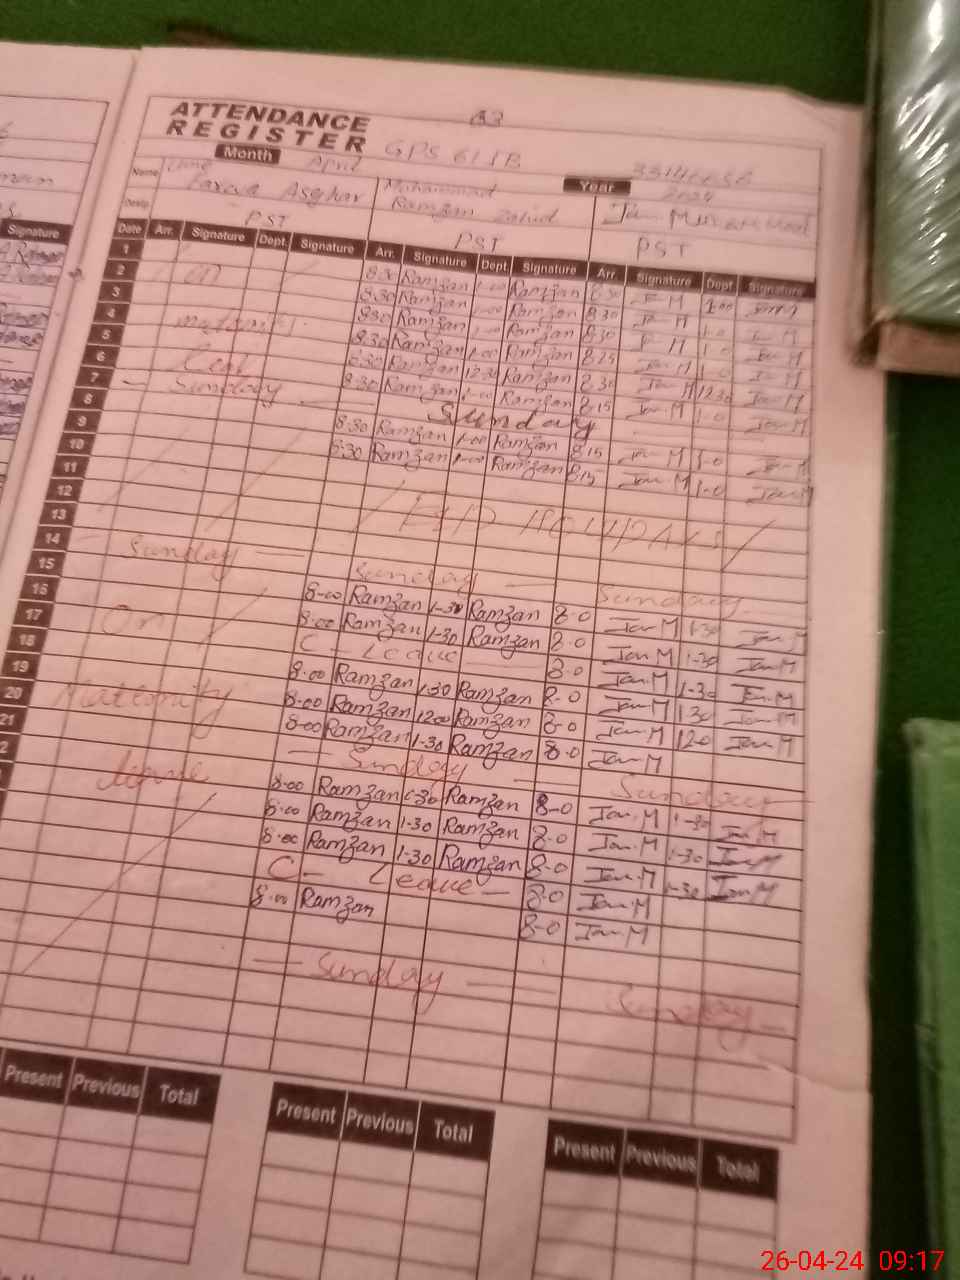 ATTENDANCE
REGISTER
GPS 61 JB
Month April
Year 2024
Name
Asghar
Muhammad
Ramzan Zahid
Jan Muhammad
Desig.
PST
PST
PST
Signature
Date Arr. Signature Dept. Signature Arr. Signature Dept. Signature Arr. Signature Dept. Signature
1 8:30 Ramzan 1-00 Ramzan 8:30 Jan M 1-00 Jan M
2 On 8:30 Ramzan 1-00 Ramzan 8:30 Jan M 1-0 Jan M
3 8:30 Ramzan 1-00 Ramzan 8:30 Jan M 1-0 Jan M
4 maternity 8:30 Ramzan 1-00 Ramzan 8:25 Jan M 1-0 Jan M
5 8:30 Ramzan 12-30 Ramzan 8:30 Jan M 12:30 Jan M
6 8:30 Ramzan 1-00 Ramzan 8:15 Jan M 1-0 Jan M
7 Sunday Sunday
8 8:30 Ramzan 1-00 Ramzan 8:15 Jan M 1-0 Jan M
9 8:30 Ramzan 1-00 Ramzan 8:15 Jan M 1-0 Jan M
10
11 EID HOLIDAYS
12
13
14 Sunday Sunday Sunday
15 8-00 Ramzan 1-30 Ramzan 8-0 Jan M 1-30 Jan M
16 8-00 Ramzan 1-30 Ramzan 8-0 Jan M 1-30 Jan M
17 On C-Leave 8-0 Jan M 1-30 Jan M
18 8-00 Ramzan 1-30 Ramzan 8-0 Jan M 1-30 Jan M
19 8-00 Ramzan 12-00 Ramzan 8-0 Jan M 12-0 Jan M
20 Maternity 8-00 Ramzan 1-30 Ramzan 8-0 Jan M
21 Sunday Sunday
leave 8-00 Ramzan 1-30 Ramzan 8-0 Jan M 1-30 Jan M
8-00 Ramzan 1-30 Ramzan 8-0 Jan M 1-30 Jan M
8-00 Ramzan 1-30 Ramzan 8-0 Jan M 1-30 Jan M
C- Leave - 8-0 Jan M
8-00 Ramzan 8-0 Jan M
Sunday Sunday
Present Previous Total Present Previous Total Present Previous Total
26-04-24 09:17